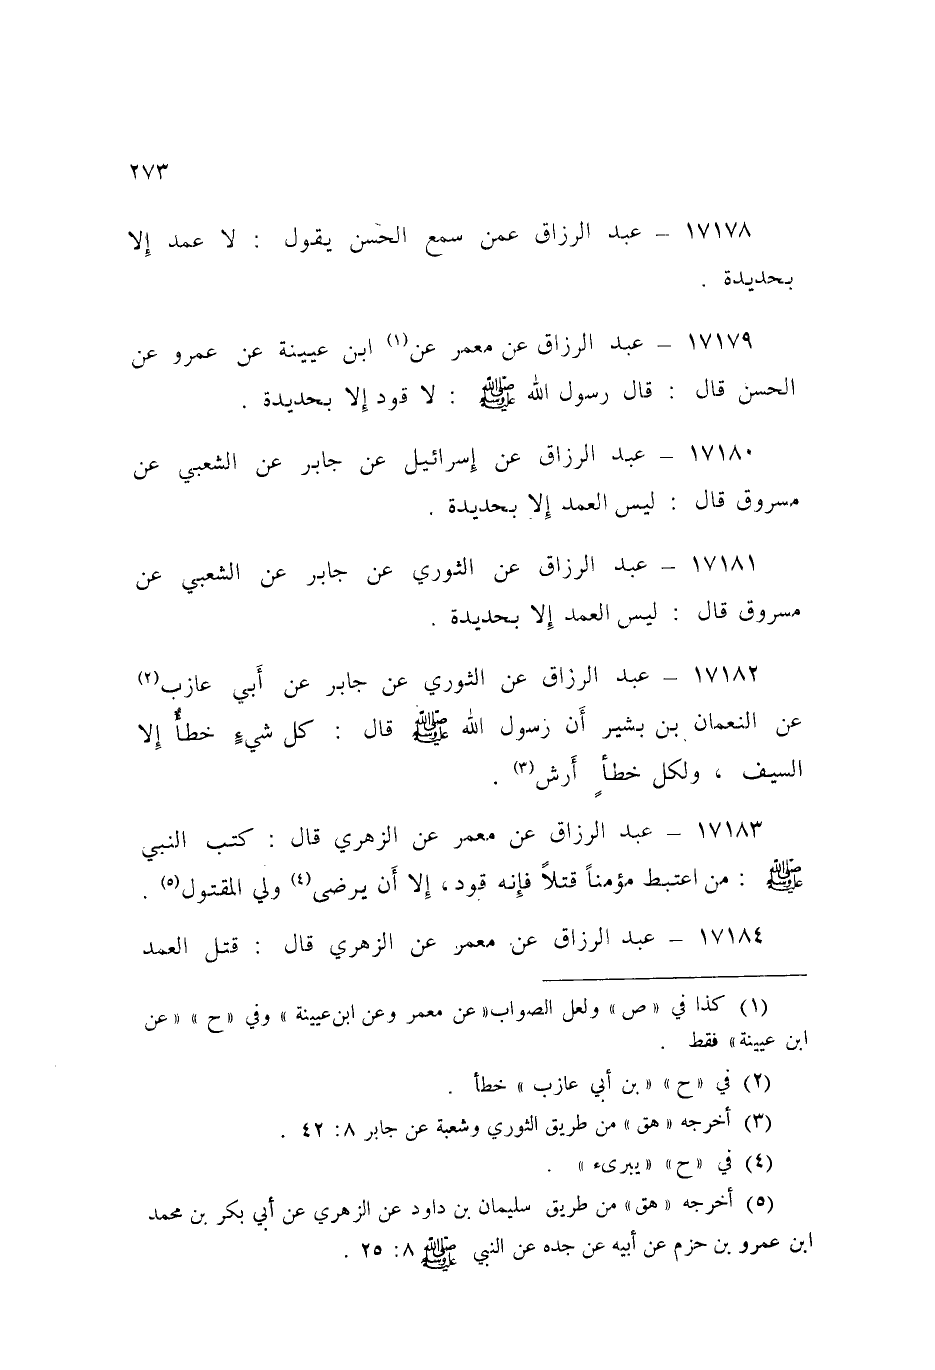 ٢٧٣
١٧١٧٨ – عبد الرزاق عمن سمع الحسن يقول : لا عمد إلا
بحديدة .
١٧١٧٩ – عبد الرزاق عن معمر عن(١) ابن عيينة عن عمرو عن
الحسن قال : قال رسول الله ﷺ : لا قود إلا بحديدة .
١٧١٨٠ – عبد الرزاق عن إسرائيل عن جابر عن الشعبي عن
مسروق قال : ليس العمد إلا بحديدة .
١٧١٨١ – عبد الرزاق عن الثوري عن جابر عن الشعبي عن
مسروق قال : ليس العمد إلا بحديدة .
١٧١٨٢ – عبد الرزاق عن الثوري عن جابر عن أَبي عازب(٢)
عن النعمان بن بشير أَن رسول الله ﷺ قال : كل شيءٍ خطأٌ إلا
السيف ، ولكل خطأٍ أَرش(٣) .
١٧١٨٣ – عبد الرزاق عن معمر عن الزهري قال : كتب النبي
ﷺ : من اعتبط مؤمناً قتلاً فإنه قود ، إلا أَن يرضى(٤) ولي المقتول(٥) .
١٧١٨٤ – عبد الرزاق عن معمر عن الزهري قال : قتل العمد
(١) كذا في « ص » ولعل الصواب « عن معمر وعن ابن عيينة » وفي « ح » « عن
ابن عيينة » فقط .
(٢) في « ح » « بن أبي عازب » خطأ .
(٣) أخرجه « هق » من طريق الثوري وشعبة عن جابر ٨ : ٤٢ .
(٤) في « ح » « يبرىء » .
(٥) أخرجه « هق » من طريق سليمان بن داود عن الزهري عن أبي بكر بن محمد
ابن عمرو بن حزم عن أبيه عن جده عن النبي ﷺ ٨ : ٢٥ .